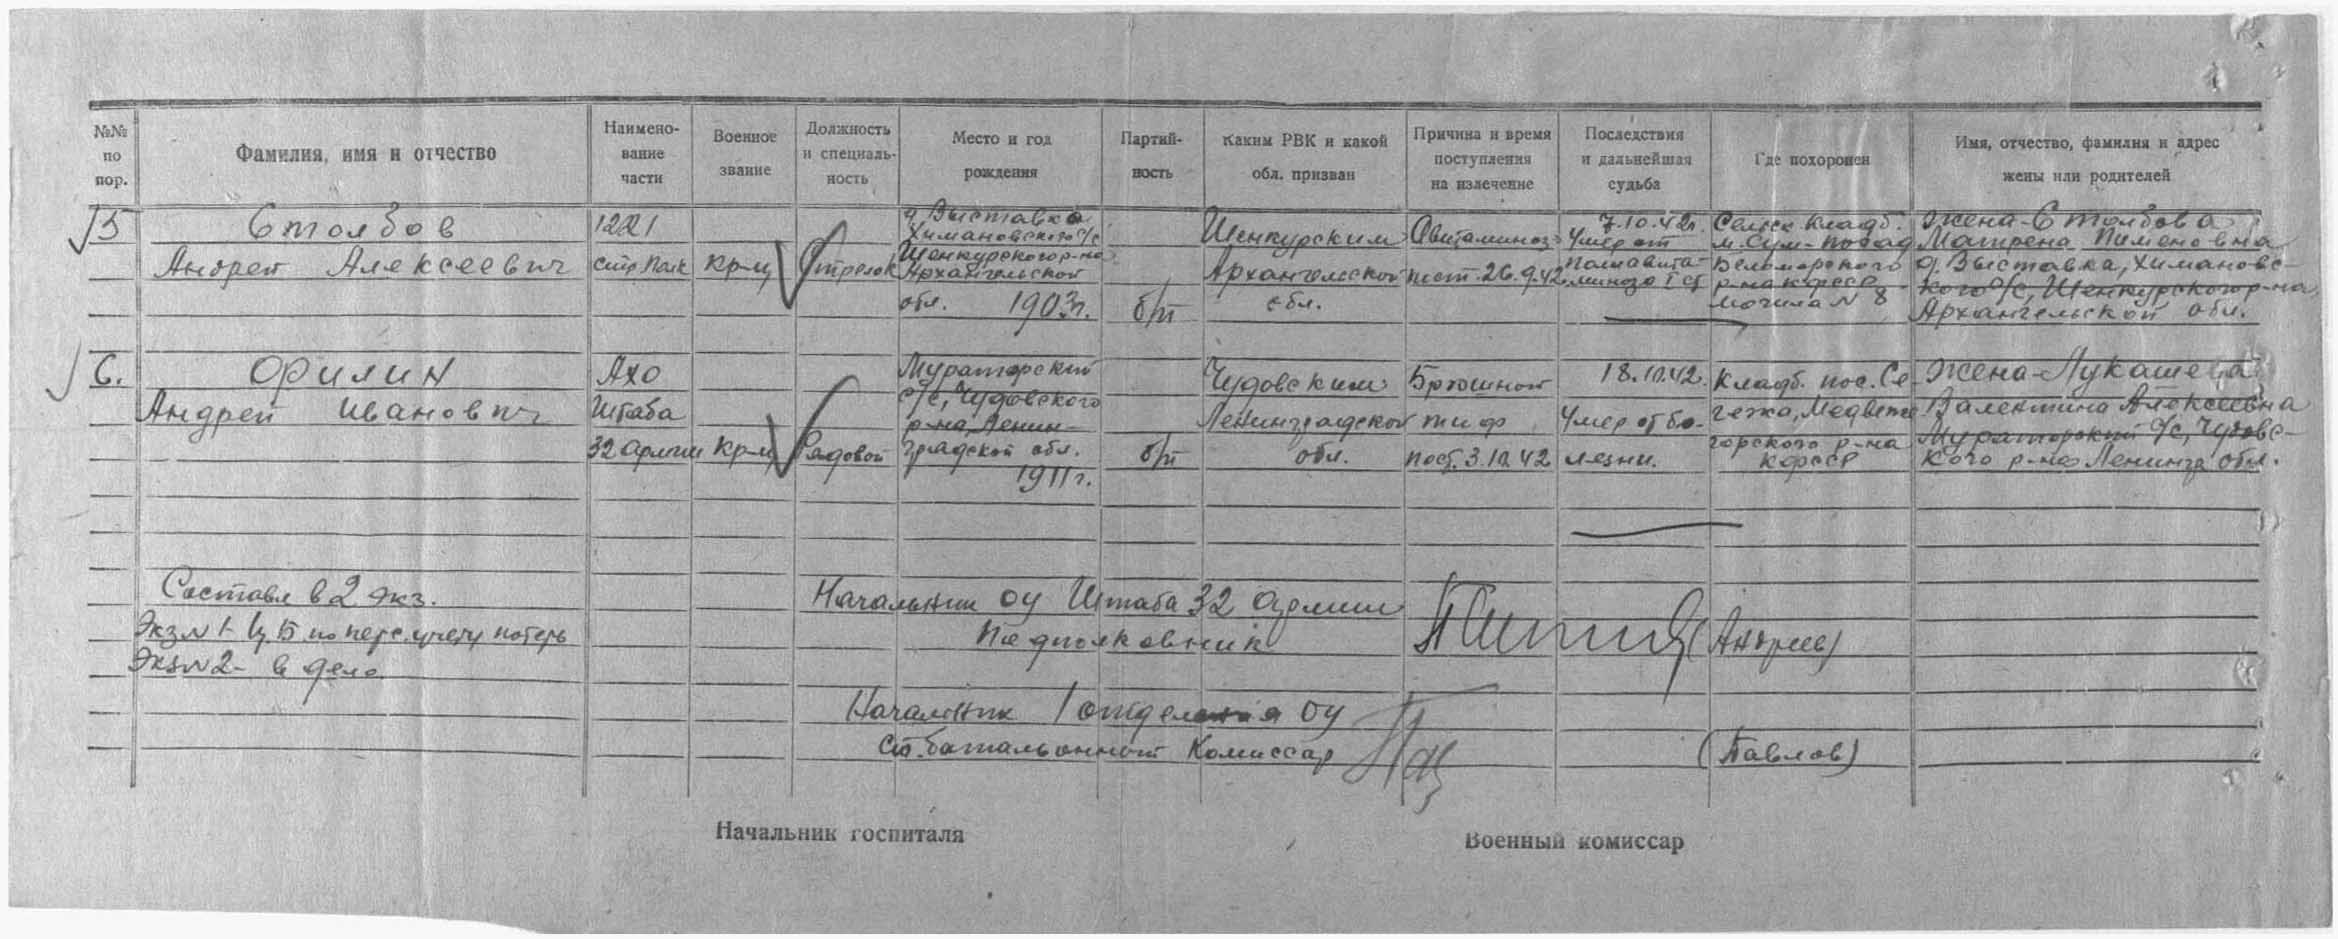 №№ по пор.
Фамилия, имя и отчество
Наимено-
вание
части
Военное
звание
Должность
и специаль-
ность
Место и год
рождения
Партий-
ность
Каким РВК и какой
обл. призван
Причина и время
поступления
на излечение
Последствия
и дальнейшая
судьба
Где похоронен
Имя, отчество, фамилия и адрес
жены или родителей
5
Столбов
Андрей Алексеевич
1221
стр. полк
кр-ц
Стрелок
д. Выставка
Химановского с/с
Шенкурского р-на
Архангельской
обл. 1903г.
б/п
Шенкурским
Архангельской
обл.
Авитаминоз
пост. 26.9.42
7.10.42г.
Умер от
полиавита-
миноза
Сельск. кладб.
м. Сум-посад
Беломорского
р-на КФССР
могила N 8
Жена-Столбова
Матрена Пименовна
д. Выставка, Химановс-
кого с/с, Шенкурского р-на
Архангельской обл.
6.
Филин
Андрей Иванович
Ахо
Штаба
32 армии
кр-ц
Рядовой
с/с, Чудовского
р-на, Ленин-
градской обл.
1911г.
б/п
Чудовским
Ленинградской
обл.
Брюшной
тиф
пост. 3.10.42
18.10.42.
Умер от бо-
лезни.
Кладб. пос. Се-
гежа, Медвеже
горского р-на
КФССР
Жена-Лукашева
Валентина Алексеевна
с/с, Чудовс-
кого р-на Ленингр обл.
Составл в 2 экз.
Экз N 1- ЦБ по перс. учету потерь
Экз N 2- в дело
Начальник ОУ Штаба 32 армии
Подполковник (Андреев)
Начальник 1 отделения ОУ
Ст. батальонный Комиссар (Павлов)
Начальник госпиталя
Военный комиссар